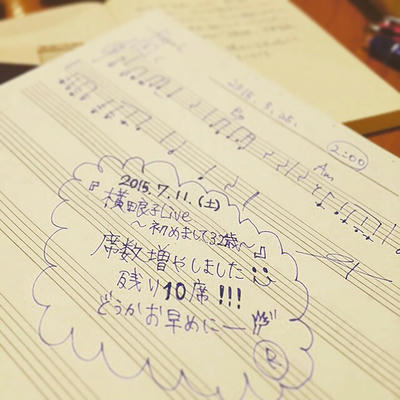 2:00
Am
2015.7.11.(土)
『横田良子Live
〜初めまして32歳〜』
席数増やしました
残り10席!!!
どうかお早めにー
R